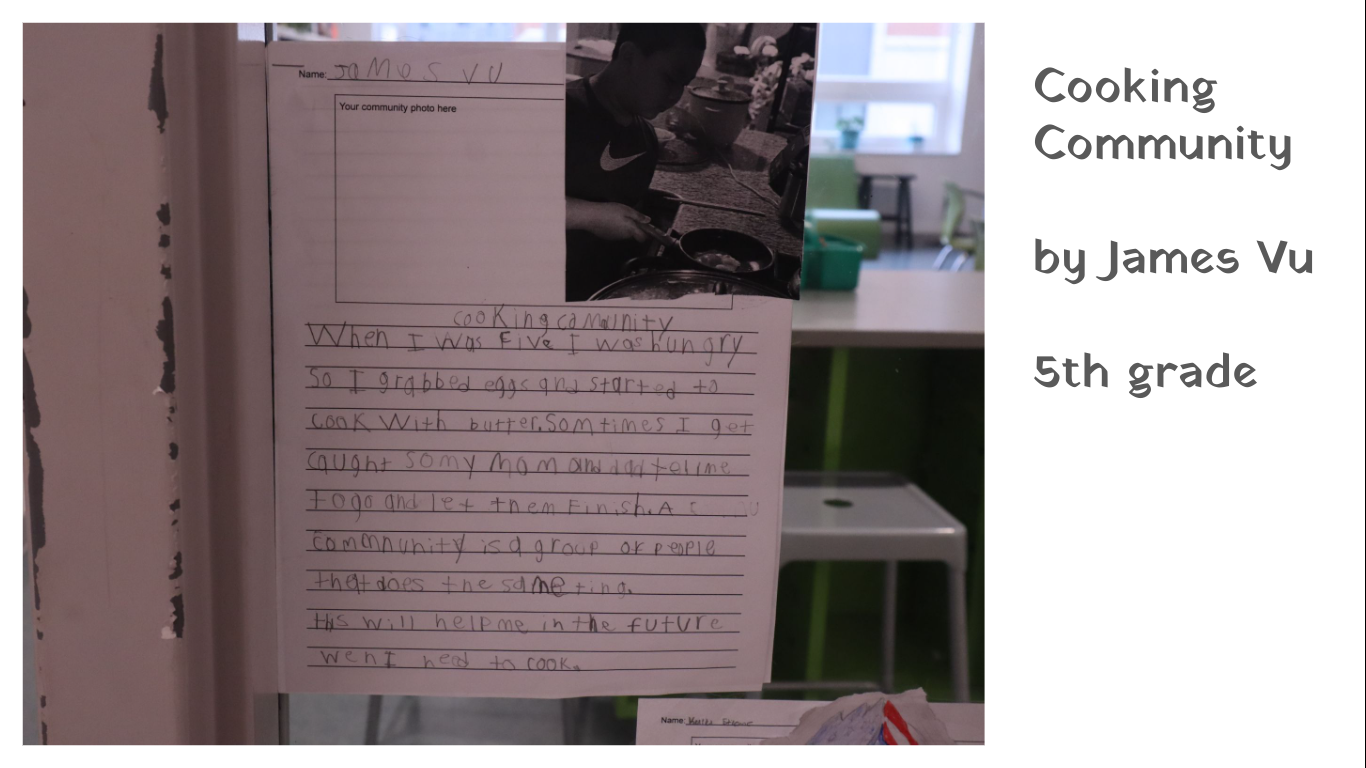 Name: JaMes VU
Your community photo here
cooking camounity
When I Was Five I was hungry
So I grabbed eggs and started to
cook With butter. Somtimes I get
caught so my Mom and dad tel me
to go and let them Finish. A
community is a group of people
that does the same ting.
this will help me in the future
wen I need to cook.
Name:
Cooking
Community
by James Vu
5th grade